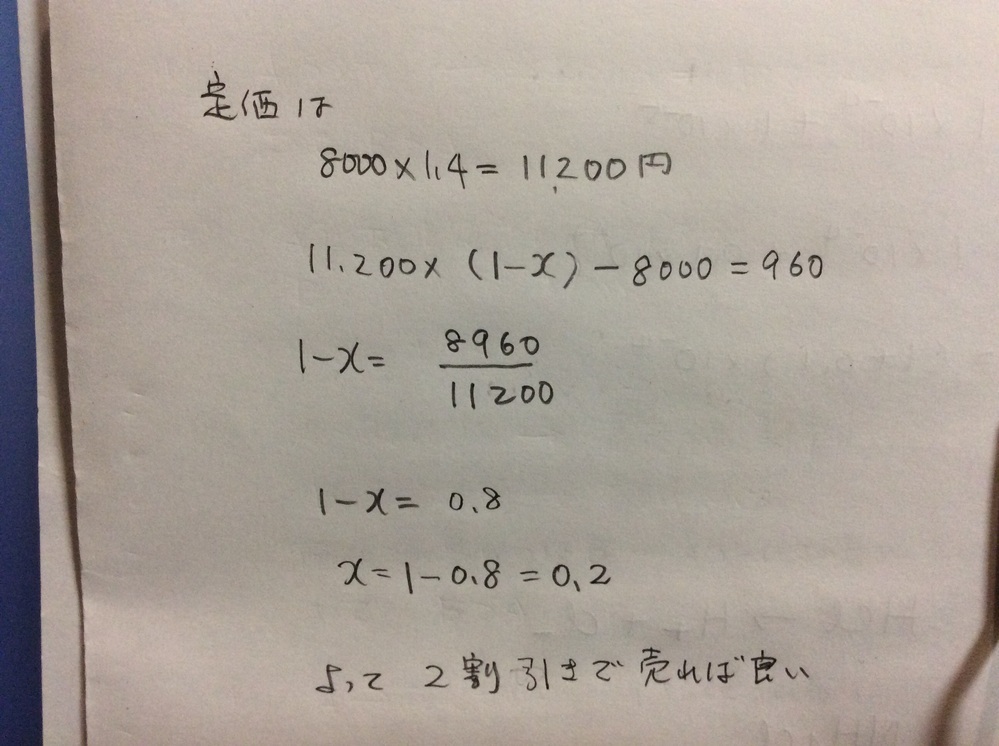 定価は
8000×1.4=11,200円
11.200×(1-x)-8000=960
1-x= 8960/11200
1-x= 0.8
x=1-0.8=0.2
よって 2割引きで売れば良い